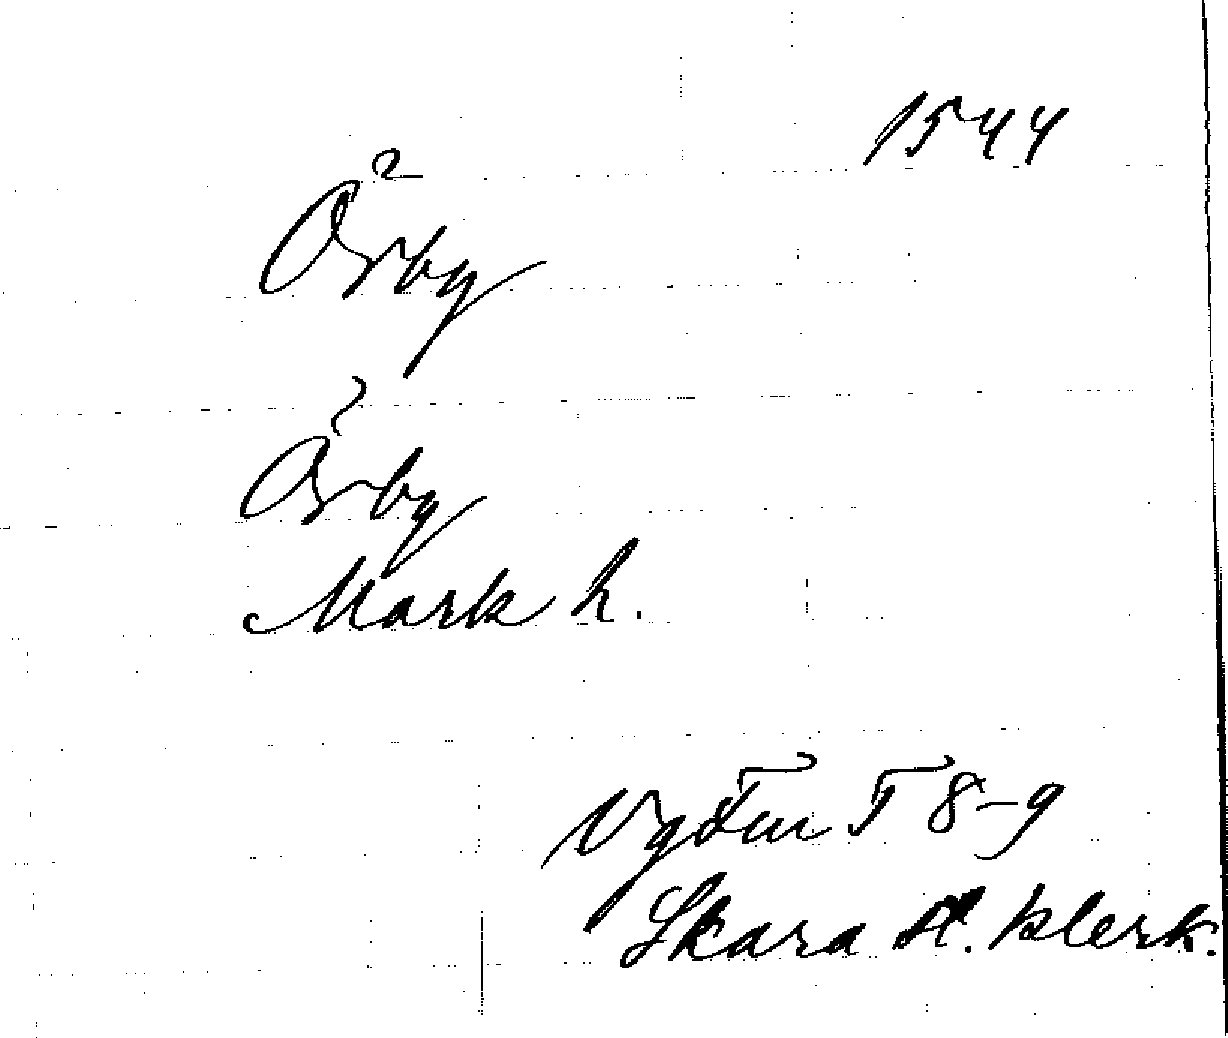 1544
Örby
Örby
Mark h.
Vg Fur T 8-9
Skara st. klerk.